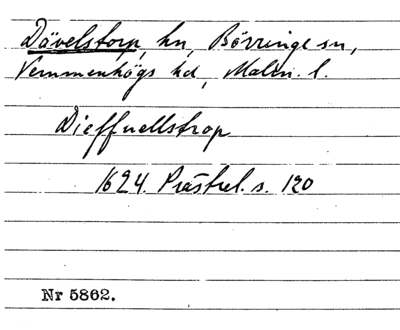 Dävelstorp, hn, Börringe sn,
Vemmenhögs hd, Malm. l.
Dieffuellstrop
1624. Prästrel. s. 120
Nr 5862.